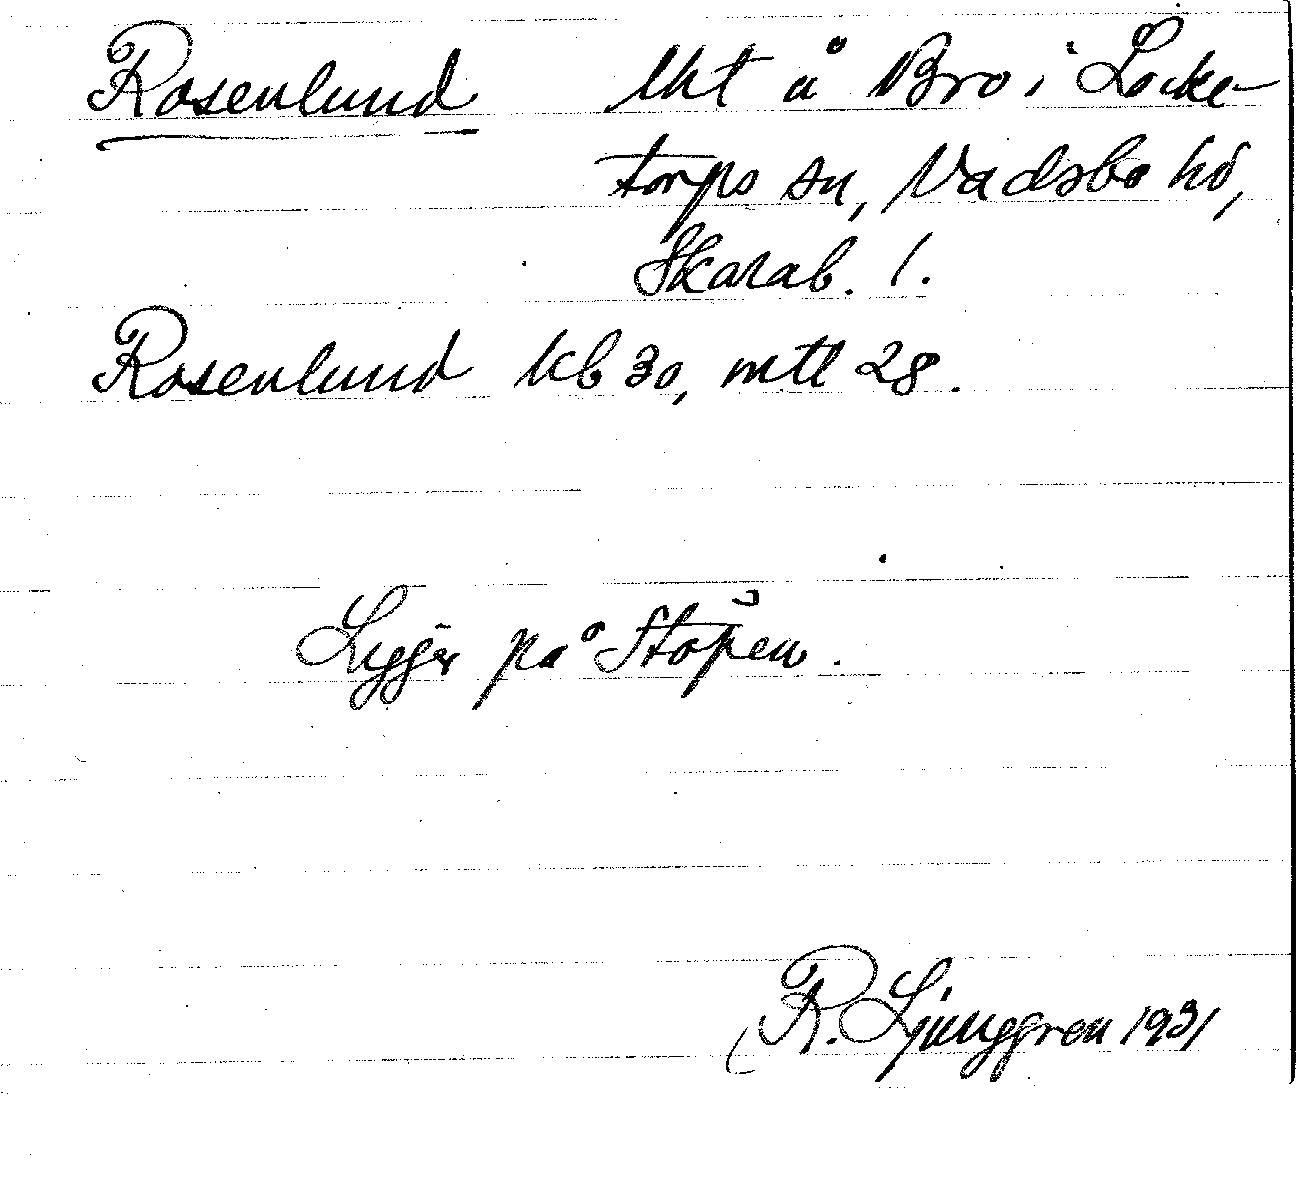 Rosenlund lht å Bro i Locke-
torps sn, Vadsbo hd,
Skarab. l.
Rosenlund kb 30, mtl 28.
Ligger på Stöpen.
R. Ljunggren 1931